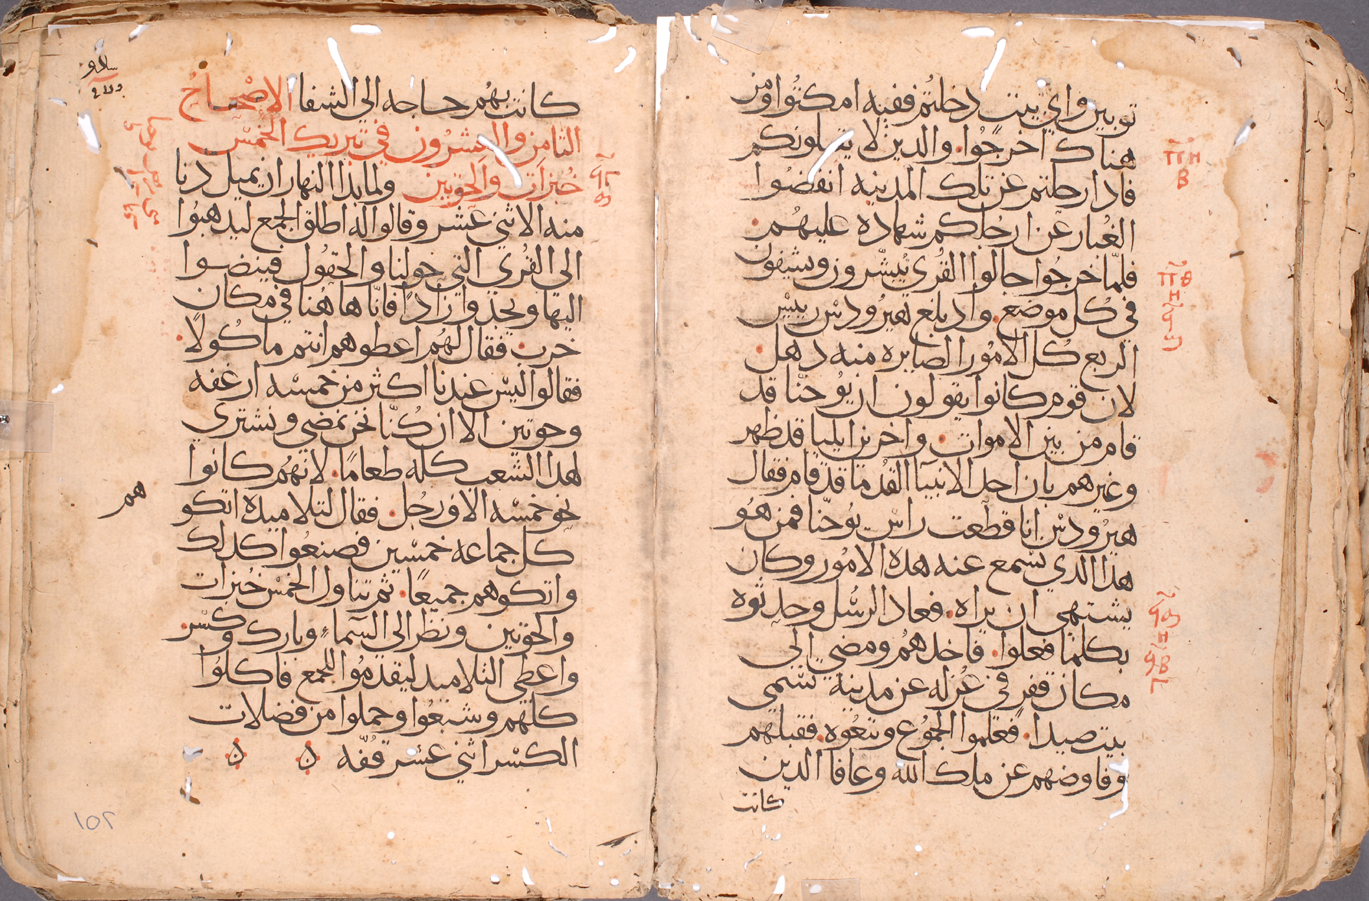 توبين واي بيت دخلتم ففيه امكثوا ومن
هناك اخرجوا. والدين لا يقبلونكم
فادا رحلتم عن تلك المدينه انفضوا
الغبار عن ارجلكم شهاده عليهم.
فلما خرجوا جالوا القرى يبشرون ويشفون
في كل موضع. واد بلغ هيرودس رييس
الربع كل الامور الصايره منه دهل.
لان قوم كانوا يقولون ان يوحنا قد
قام من بين الاموات. واخرين ايليا قد ظهر
وغيرهم بان احد الانبيآ القدما قد قام فقال
هيرودس انا قطعت راس يوحنا فمن هو
هدا الدي نسمع عنه هده الامور وكان
يشتهي ان يراه. فعاد الرسل وحدثوه
بكلما فعلوا. فاخدهم ومضي الى
مكان قفر في عزله عن مدينه تسمي
بيت صيدا. فعلموا الجموع وتبعوه. فقبلهم
وفاوضهم عن ملك الله وعافا الدين
كانت
كانت بهم حاجه الى الشفا الاصحاح
الثامن والعشرون في تبريك الخمس
خبزات والحوتين ولما بدا النهار ان يميل دنا
منه الاثني عشر وقالوا له اطلق الجمع ليدهبوا
الى القرى التي حولنا والحقول فينضوا
اليها ويجدوا زادا فاننا هاهنا في مكان
خرب. فقال لهم اعطوهم انتم ماكولا.
فقالوا ليس عندنا اكثر من خمسه ارغفه
وحوتين الا ان كنا نحن نمضي ونشتري
لهدا الشعب كله طعاما. لانهم كانوا
نحو خمسه الاف رجل. فقال لتلاميده اتكو
هم
كل جماعه خمسين فصنعوا كدلك
واتكوهم جميعا. ثم تناول الخمس خبزات
والحوتين ونظر الى السماء وبارك وكسر.
واعطي التلاميد ليقدموا للجمع فاكلوا
كلهم وشبعوا وحملوا من فضلات
الكسر اثني عشر قفه
١٥٢